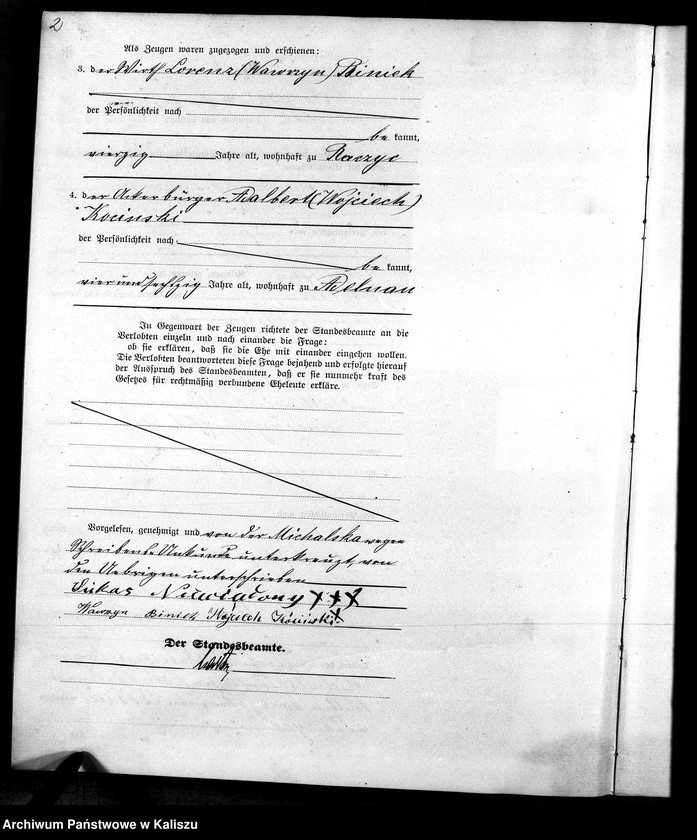 2
Als Zeugen waren zugezogen und erschienen:
3. der Wirth Lorenz (Wawrzyn) Biniek
der Persönlichkeit nach
be kannt,
vierzig Jahre alt, wohnhaft zu Raczyc
4. der Ackerbürger Adalbert (Wojciech)
Kocinski
der Persönlichkeit nach
be kannt,
vier und sechzig Jahre alt, wohnhaft zu Adelnau
In Gegenwart der Zeugen richtete der Standesbeamte an die
Verlobten einzeln und nach einander die Frage:
ob sie erklären, daß sie die Ehe mit einander eingehen wollen.
Die Verlobten beantworteten diese Frage bejahend und erfolgte hierauf
der Ausspruch des Standesbeamten, daß er sie nunmehr kraft des
Gesetzes für rechtmäßig verbundene Eheleute erkläre.
Vorgelesen, genehmigt und von der Michalska wegen
Schreibens Unkunde unterkreuzt, von
den Uebrigen unterschrieben
Lukas Niewiadomy XXX
Wawrzyn Biniek Wojciech Kociński
Der Standesbeamte.
Archiwum Państwowe w Kaliszu